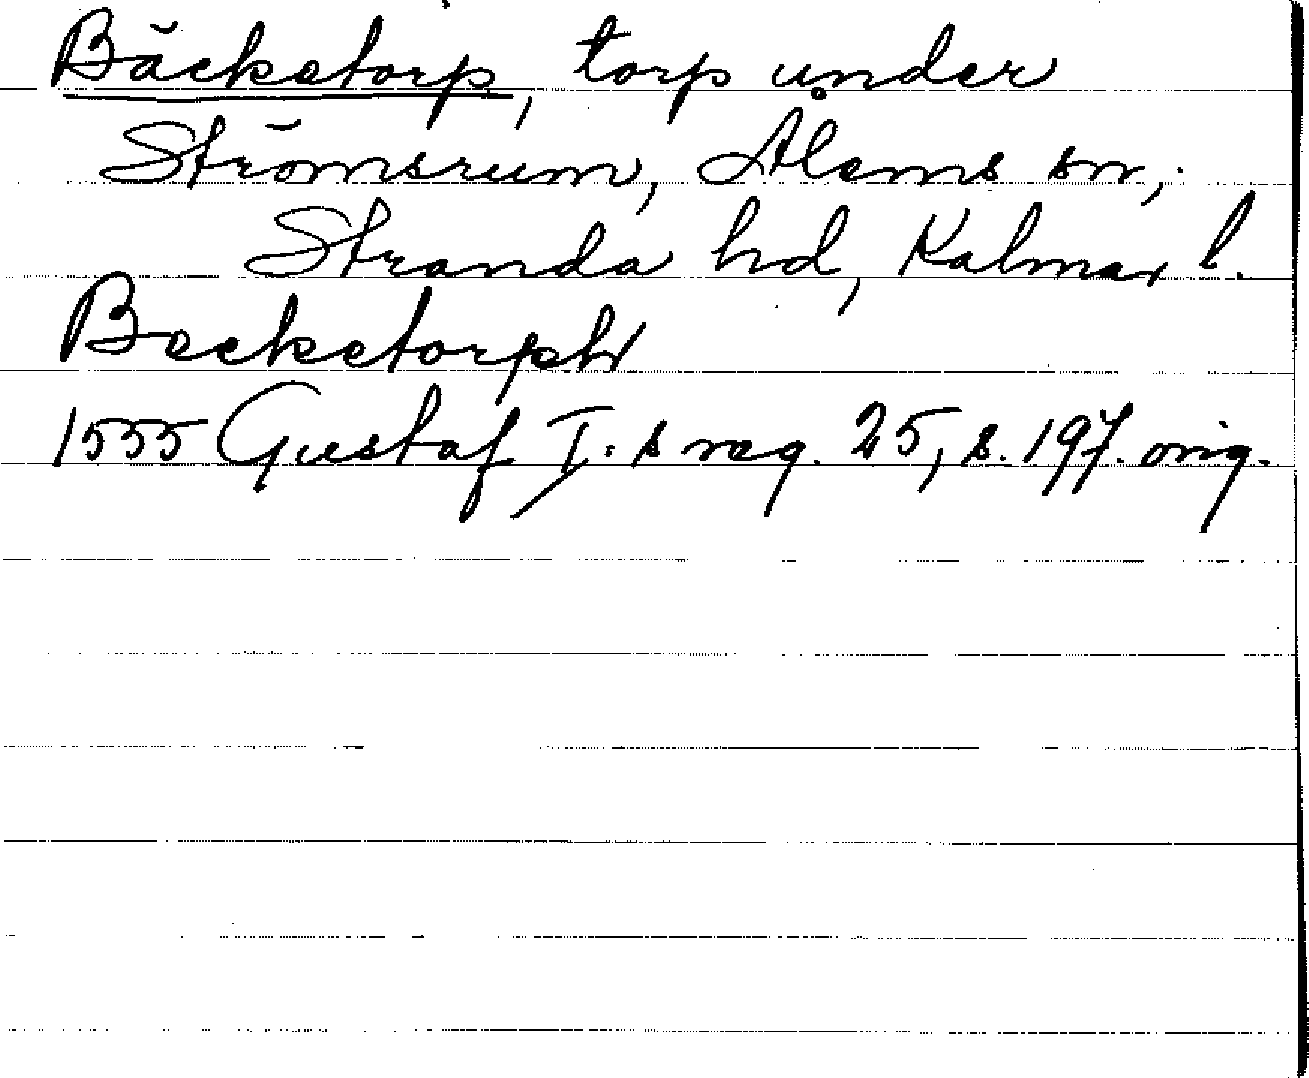 Bäcketorp, torp under
Strömsrum, Ålems sn,
Stranda hd, Kalmar l.
Becketorph
1555 Gustaf I:s reg. 25, s. 197. orig.